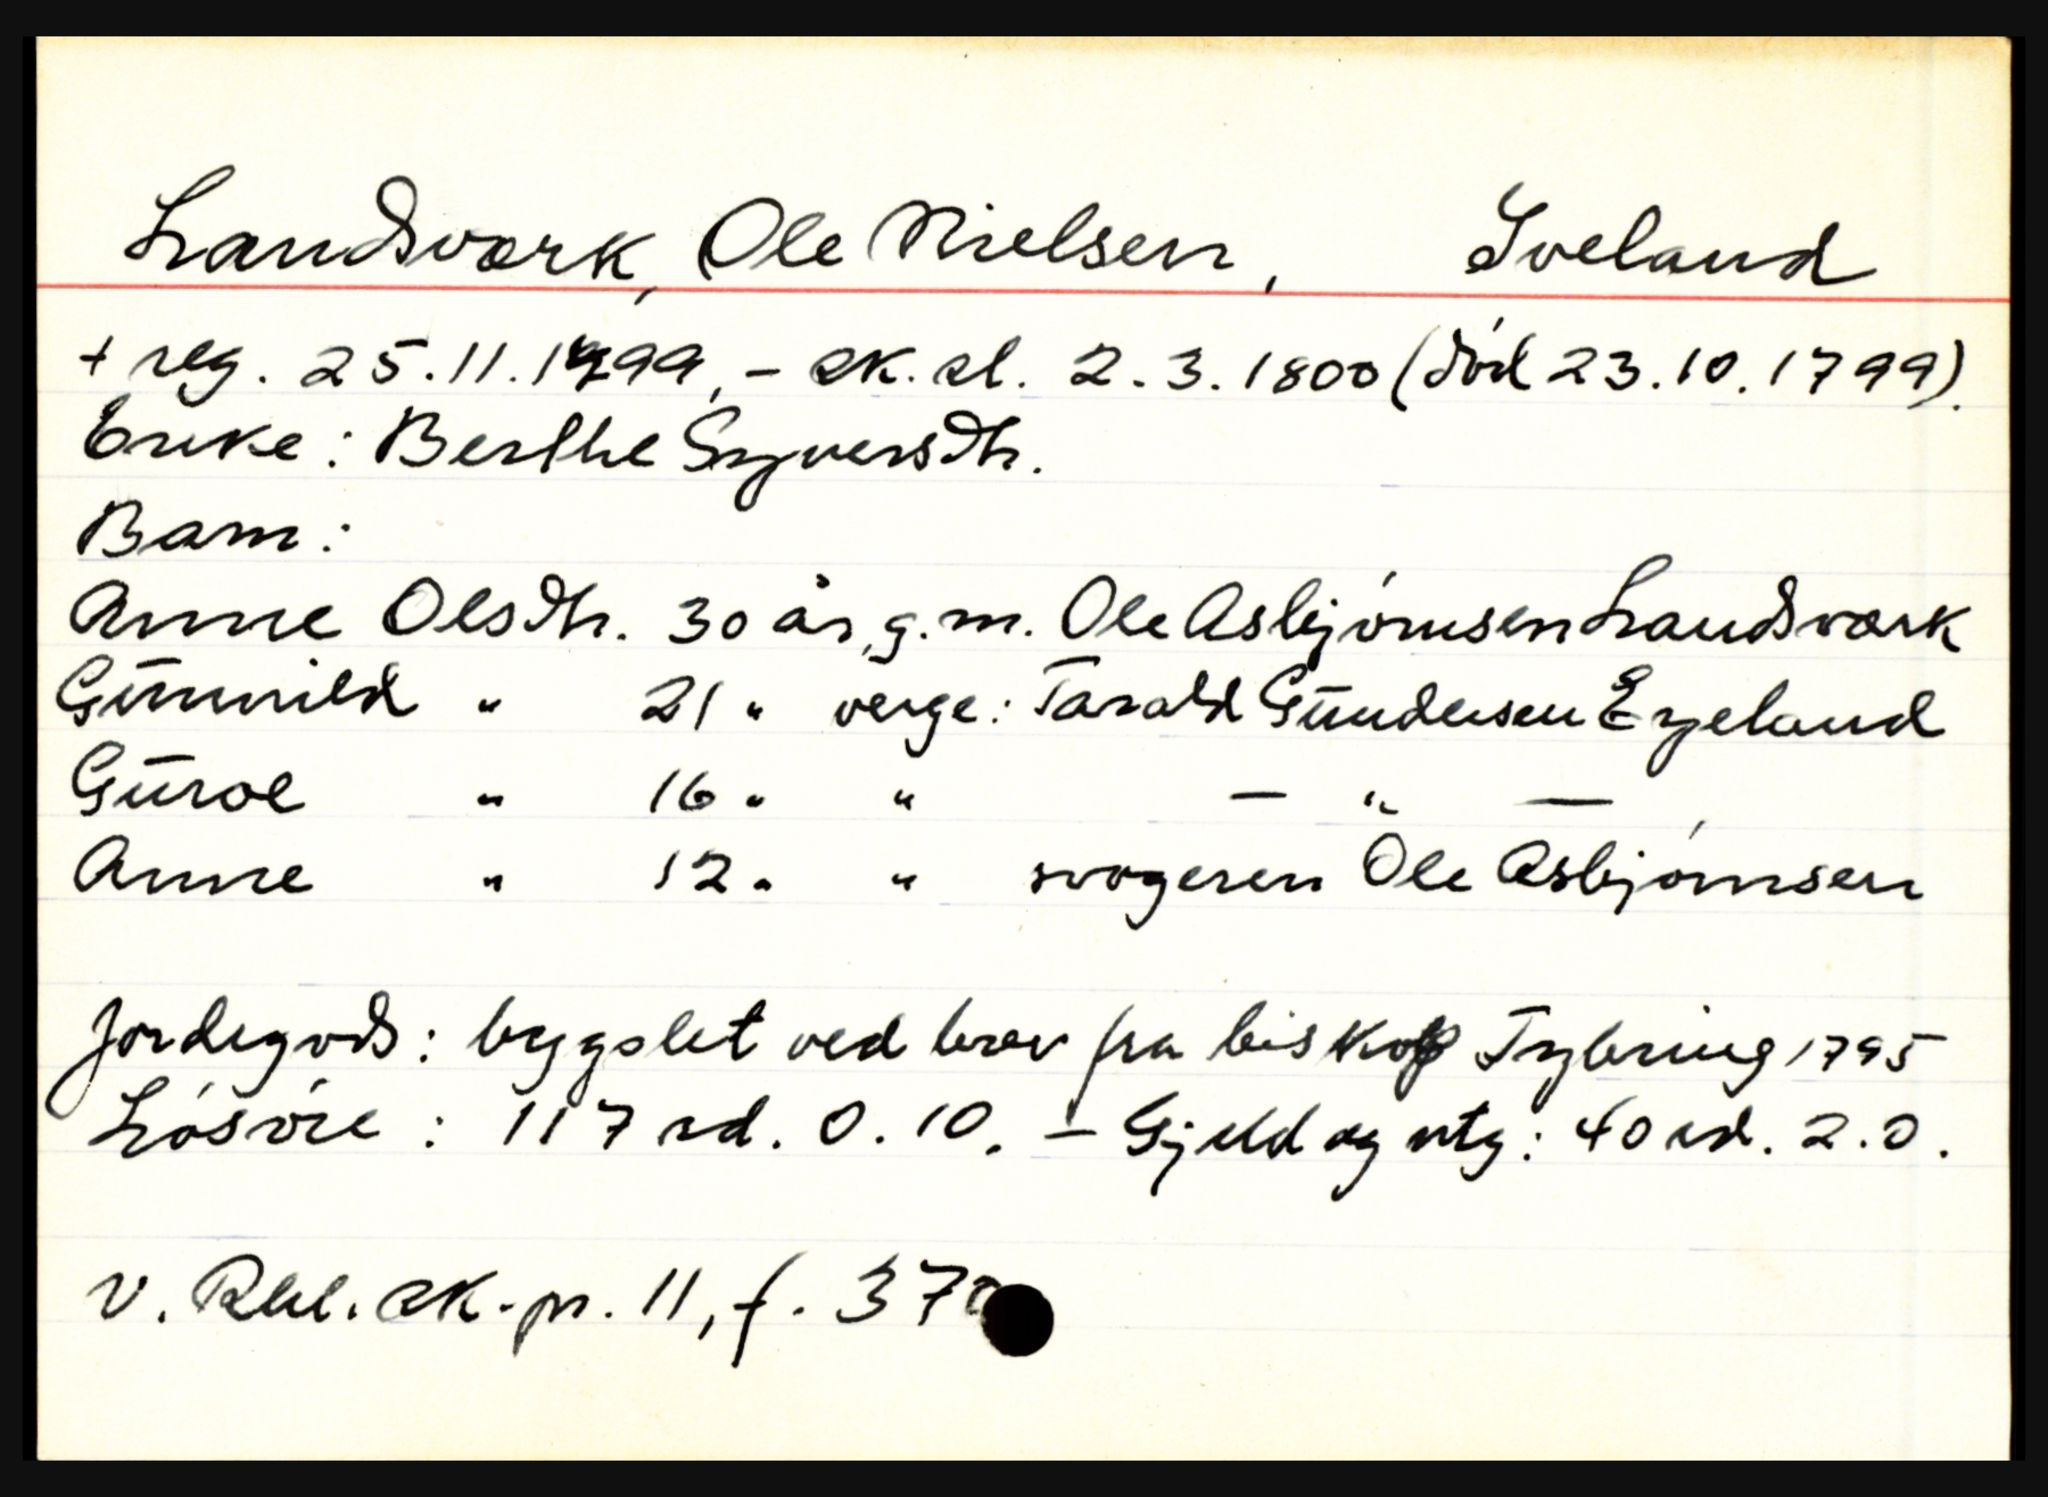 Landsværk, Ole Nielsen, Iveland
+ reg. 25.11.1799, - sk.sl. 2.3.1800 (död 23.10.1799).
Enke: Berthe Syversdtr.
Barn:
Anne Olsdtr. 30 år, g.m. Ole Asbjörnsen Landsværk
Gunnild " 21 " verge: Tarald Gundersen Eyeland
Guroe " 16 " " — " —
Anne " 12 " " svogeren Ole Asbjörnsen
Jordegods: bygslet ved brev fra biskop Tybring 1795
Lösöre: 117 rd. 0. 10. - Gjeld og utg: 40 rd. 2.0.
V. Rbl. sk.pr. 11, f. 37